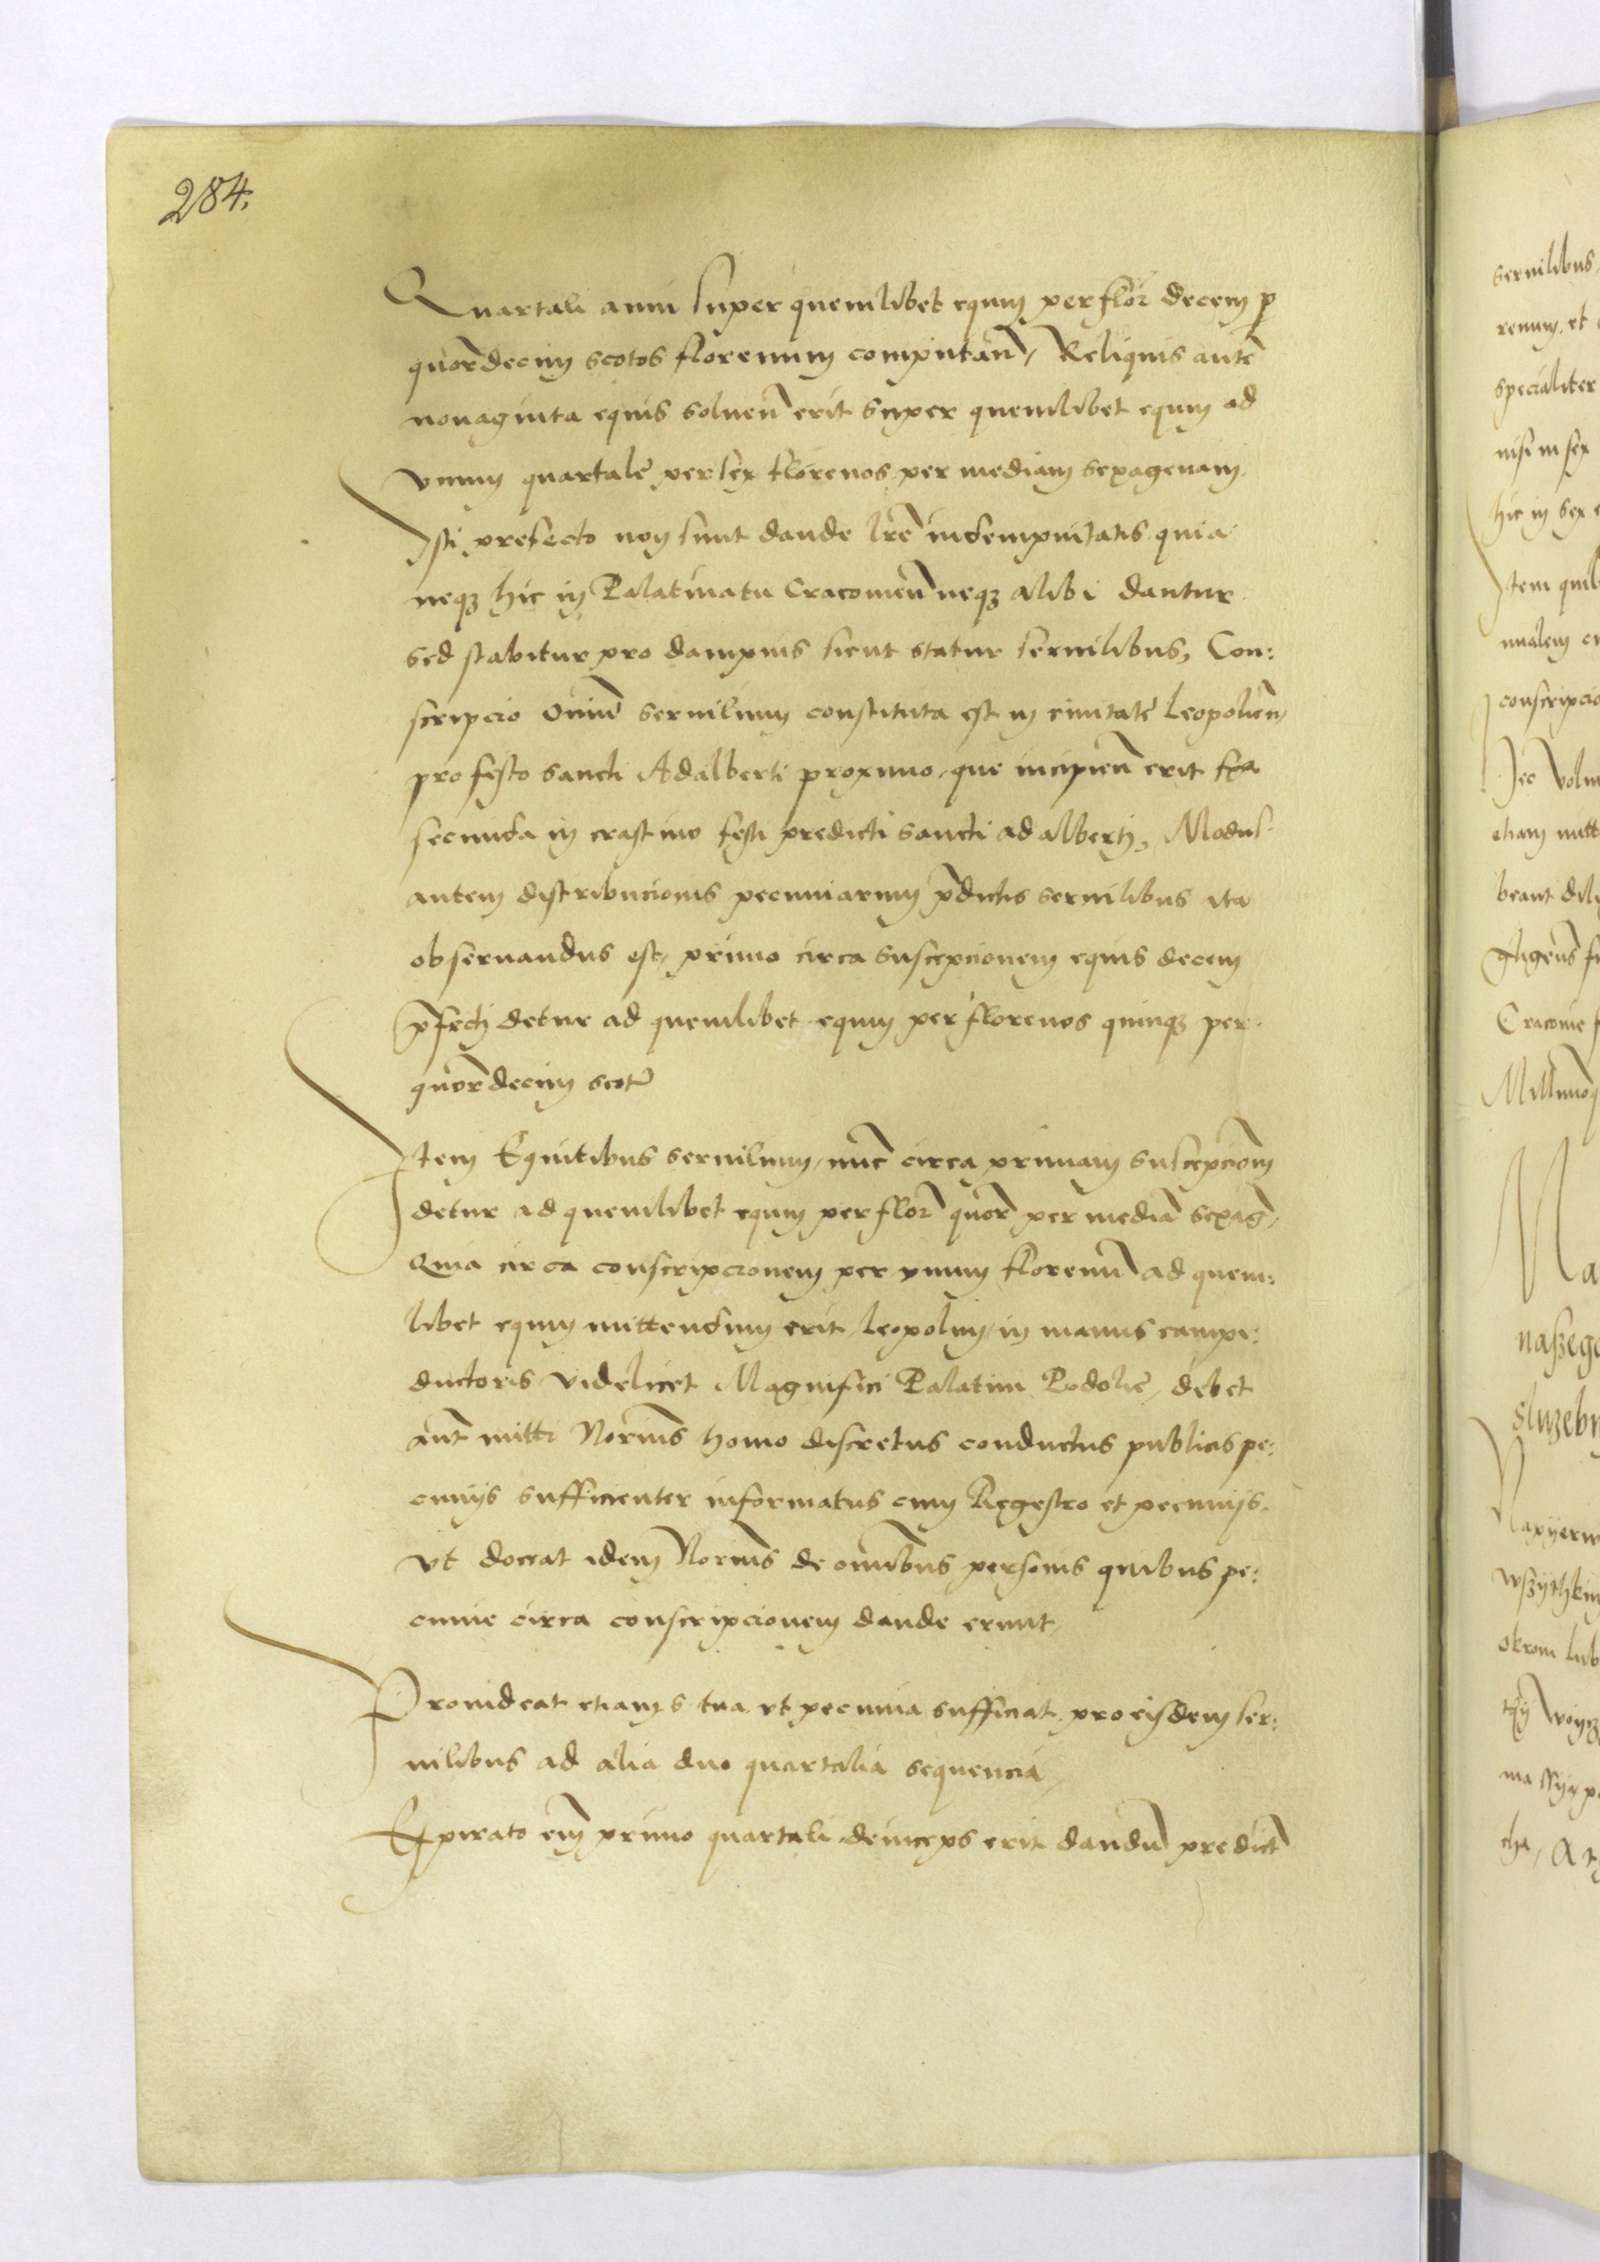 284.
Quartali anni super quemlibet equum per flor decem p
quordecim scotos florenum computan, Reliquis aute
nonaginta equis soluen erit super quemlibet equum ad
vnum quartale per sex florenos per mediam sexagenam.
Isti prefecto non sunt dande lre indempnitatis quia
neqz hic in Palatinatu Cracouien neqz alibi dantur
sed stabitur pro dampnis sicut statur seruilibus, Con:
scripcio oium seruilium constituta est in ciuitate Leopolien
pro festo sancti Adalberti proximo, que incipien erit fra
secunda in crastino festi predicti sancti adalberti, Modus
autem distribucionis pecuniarum pdictis seruilibus ita
obseruandus est, primo circa suscepcionem equis decem
pfecti detur ad quemlibet equum per florenos quinqz per
quordecim scot
Item Equitibus seruilium, nuc circa primam suscepciom
detur ad quemlibet equum per flor quor per media sexage,
Quia circa conscripcionem per vnum florenu ad quem:
libet equum mittendum erit, Leopolim, in manus campi:
ductoris videlicet Magnifici Palatini Podolie, debet
aut mitti Norius homo discretus conductus publicis pe:
cuniis sufficienter informatus cum Regestro et pecuniis.
vt doceat idem Norius de omibus personis quibus pe:
cunie circa conscripcionem dande erunt,
Prouideat etiam s tua vt pecunia sufficiat pro eisdem ser:
uilibus ad alia duo quartalia sequencia,
Expirato eim primo quartali deinceps erit dandu predict
seruilibus
renum. et
specialiter
nisi in sex
hic in sex
Item quil
conscripcio
etiam mitt
beant dili
Cracouie
Ma
naszego